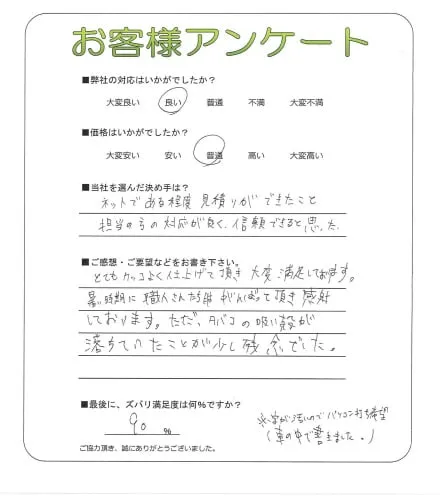 お客様アンケート
■弊社の対応はいかがでしたか?
大変良い 良い 普通 不満 大変不満
■価格はいかがでしたか?
大変安い 安い 普通 高い 大変高い
■当社を選んだ決め手は?
ネットである程度見積りができたこと
担当の方の対応が良く、信頼できると思った。
■ご感想・ご要望などをお書き下さい。
とてもカッコよく仕上げて頂き大変満足しております。
暑い時期に職人さんたちがんばって頂き感謝
しております。ただ、タバコの吸い殻が
落ちていたことが少し残念でした。
■最後に、ズバリ満足度は何%ですか?
90 %
※字が汚いのでパソコン打ち希望
(車の中で書きました。)
ご協力頂き、誠にありがとうございました。